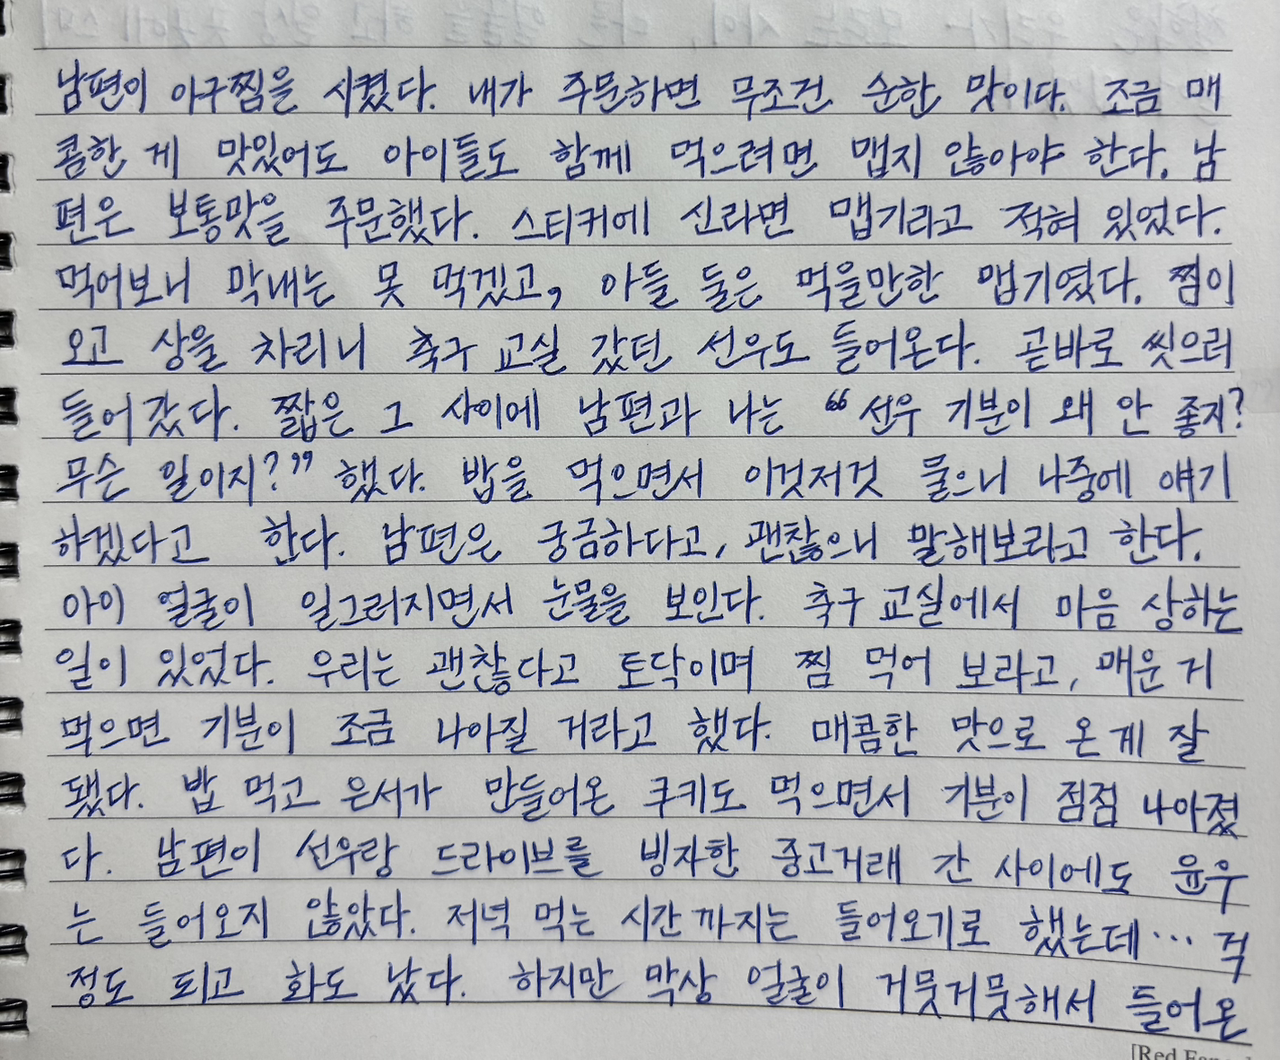 남편이 아구찜을 시켰다. 내가 주문하면 무조건 순한 맛이다. 조금 매
콤한 게 맛있어도 아이들도 함께 먹으려면 맵지 않아야 한다. 남
편은 보통맛을 주문했다. 스티커에 신라면 맵기라고 적혀 있었다.
먹어보니 막내는 못 먹겠고, 아들 둘은 먹을만한 맵기였다. 찜이
오고 상을 차리니 축구 교실 갔던 선우도 들어온다. 곧바로 씻으러
들어갔다. 짧은 그 사이에 남편과 나는 “선우 기분이 왜 안 좋지?
무슨 일이지?” 했다. 밥을 먹으면서 이것저것 물으니 나중에 얘기
하겠다고 한다. 남편은 궁금하다고, 괜찮으니 말해보라고 한다.
아이 얼굴이 일그러지면서 눈물을 보인다. 축구 교실에서 마음 상하는
일이 있었다. 우리는 괜찮다고 토닥이며 찜 먹어 보라고, 매운 거
먹으면 기분이 조금 나아질 거라고 했다. 매콤한 맛으로 온 게 잘
됐다. 밥 먹고 은서가 만들어온 쿠키도 먹으면서 기분이 점점 나아졌
다. 남편이 선우랑 드라이브를 빙자한 중고거래 간 사이에도 윤우
는 들어오지 않았다. 저녁 먹는 시간까지는 들어오기로 했는데… 걱
정도 되고 화도 났다. 하지만 막상 얼굴이 거뭇거뭇해서 들어온